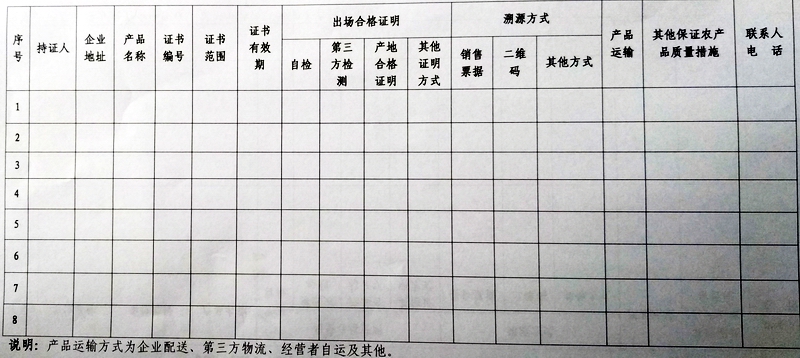 序号 持证人 企业地址 产品名称 证书编号 证书范围 证书有效期 出场合格证明 溯源方式 产品运输 其他保证农产品质量措施 联系人电话
自检 第三方检测 产地合格证明 其他证明方式 销售票据 二维码 其他方式
1
2
3
4
5
6
7
8
说明：产品运输方式为企业配送、第三方物流、经营者自运及其他。